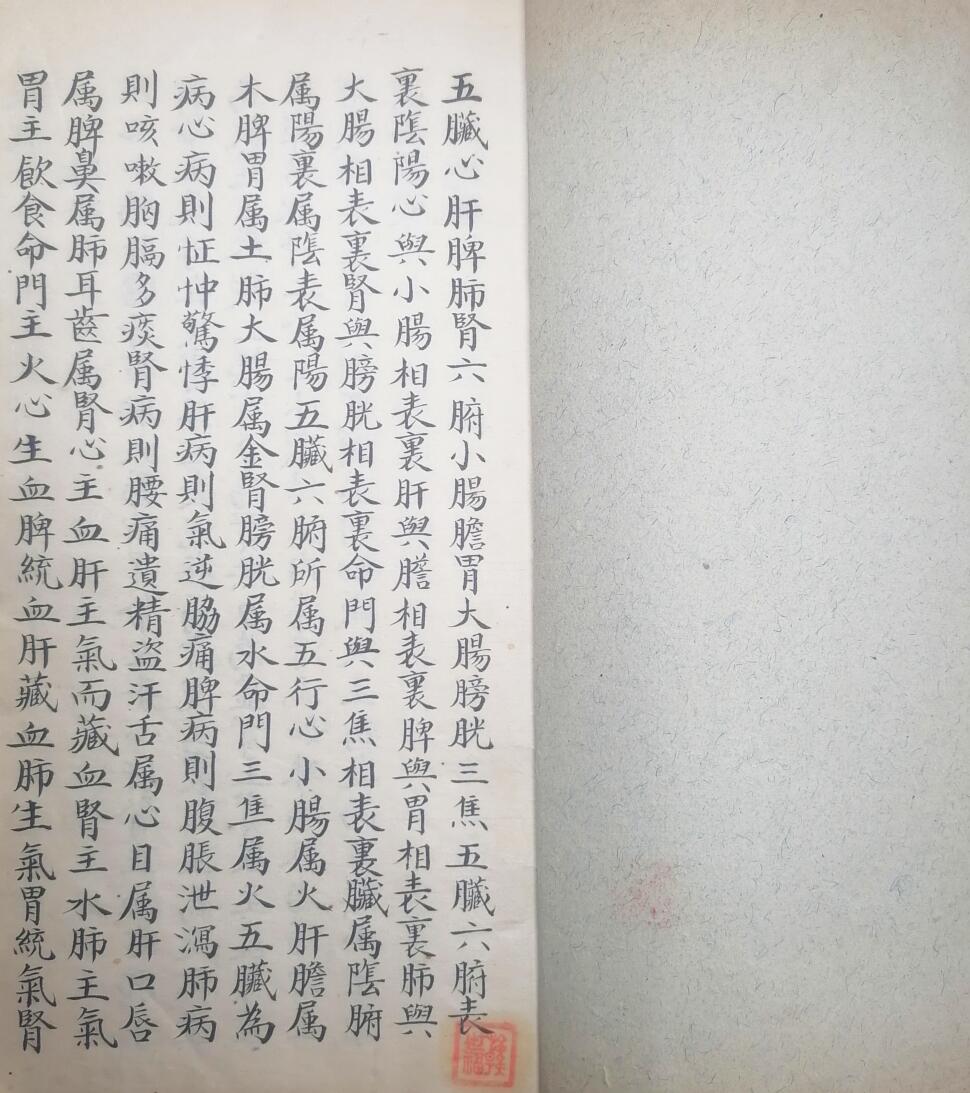 五臟心肝脾肺腎六腑小腸膽胃大腸膀胱三焦五臟六腑表
裏陰陽心與小腸相表裏肝與膽相表裏脾與胃相表裏肺與
大腸相表裏腎與膀胱相表裏命門與三焦相表裏臟属陰腑
属陽裏属陰表属陽五臟六腑所属五行心小腸属火肝膽属
木脾胃属土肺大腸属金腎膀胱属水命門三焦属火五臟為
病心病則怔忡驚悸肝病則氣逆脇痛脾病則腹脹泄瀉肺病
則咳嗽胸膈多痰腎病則腰痛遺精盗汗舌属心目属肝口唇
属脾鼻属肺耳齒属腎心主血肝主氣而藏血腎主水肺主氣
胃主飲食命門主火心生血脾統血肝藏血肺生氣胃統氣腎